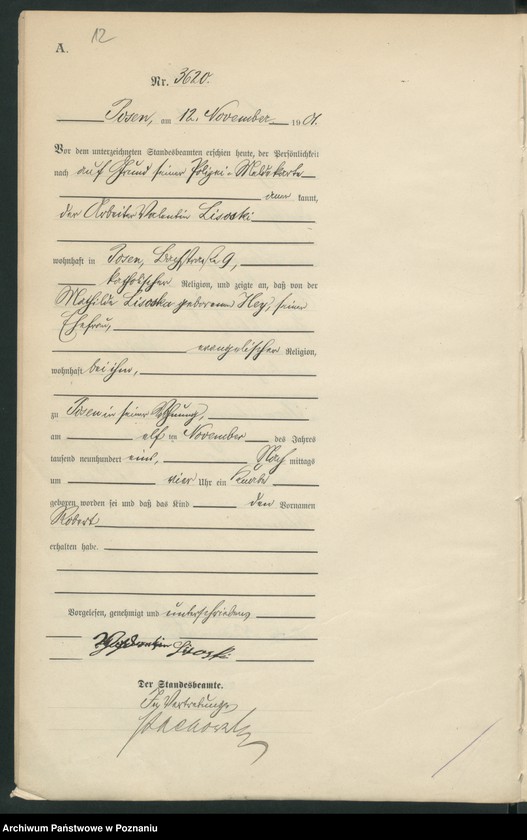 12
A.
Nr. 3620.
Posen, am 12. November 1901.
Vor dem unterzeichneten Standesbeamten erschien heute, der Persönlichkeit
nach auf Grund seiner Polizei-Meldekarte
kannt,
der Arbeiter Valentin
wohnhaft in Posen, 9,
katholischer Religion, und zeigte an, daß von der
Mathilde geborenen Hey, seiner
Ehefrau,
evangelischer Religion,
wohnhaft bei ihm,
zu Posen in seiner Wohnung,
am elf ten November des Jahres
tausend neunhundert eins, Nach mittags
um vier Uhr ein Knabe
geboren worden sei und daß das Kind den Vornamen
Robert
erhalten habe.
Vorgelesen, genehmigt und unterschrieben
Der Standesbeamte.
In Vertretung
Archiwum Państwowe w Poznaniu